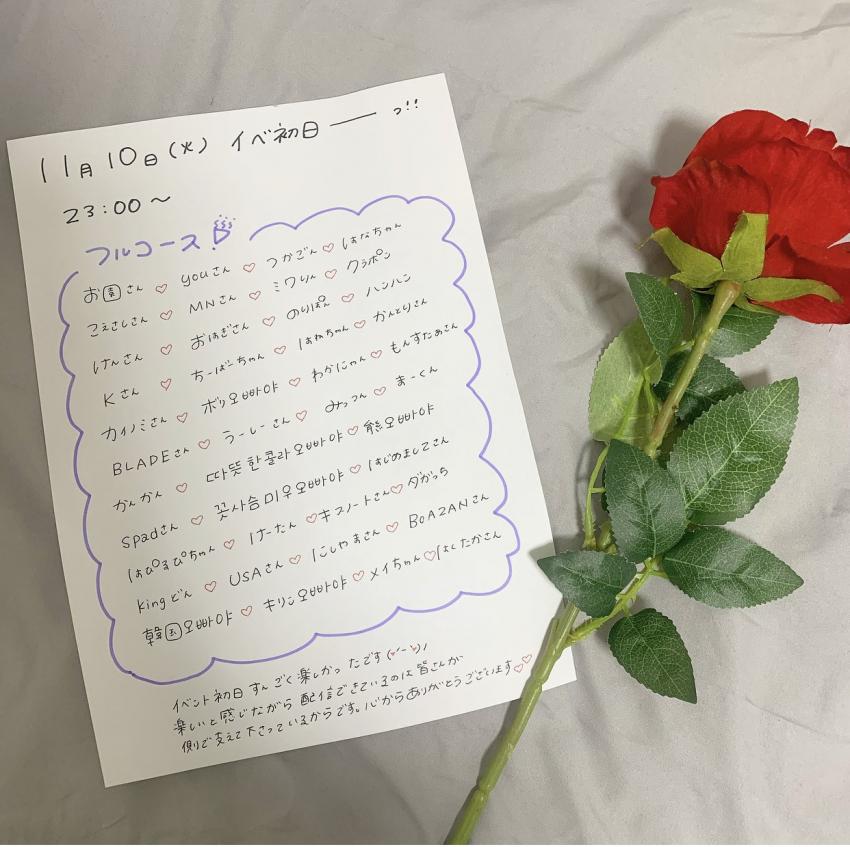 11月10日(火) イベ初日――っ!!
23:00〜
フルコース
お圊さん ♡ youさん ♡ つかごん ♡ はなちゃん
こえさしさん ♡ MNさん ♡ ミワりん ♡ クラポン
けんさん ♡ おはぎさん ♡ のりぽん ♡ ハンハン
Kさん ♡ ちーばーちゃん ♡ はねちゃん ♡ かんとりさん
カイノミさん ♡ ポリ오빠야 ♡ わかにゃん ♡ もんすたぁさん
BLADEさん ♡ うーしーさん ♡ みっつん ♡ まーくん
かんかん ♡ 따뜻한콜라오빠야 ♡ 熊오빠야
spadさん ♡ 꽃사슴미우오빠야 ♡ はじめましてさん
はぴるぴちゃん ♡ けーたん ♡ キスノートさん ♡ ダがっち
kingどん ♡ USAさん ♡ にしやまさん ♡ BOAZANさん
韓国오빠야 ♡ キリン오빠야 ♡ メイちゃん ♡ はくたかさん
イベント初日すんごく楽しかったです
楽しいと感じながら配信できているのは皆さんが
側で支えて下さっているからです。心からありがとうございます♡♡